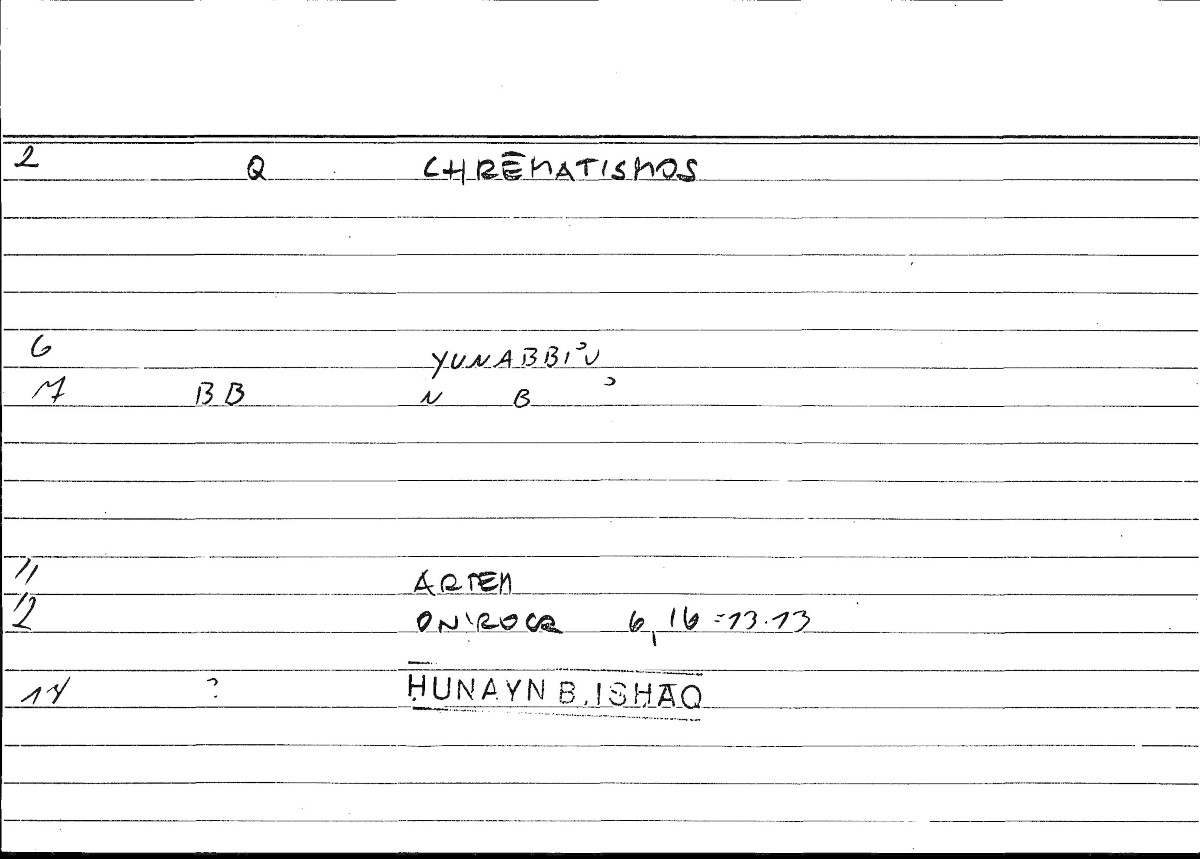 2 Q CHRĒMATISMOS
6 YUNABBIʾU
7 BB N B ʾ
11 ARTEM
12 ONIROCR 6,16=13.13
14 ? ḤUNAYN B. ISḤAQ